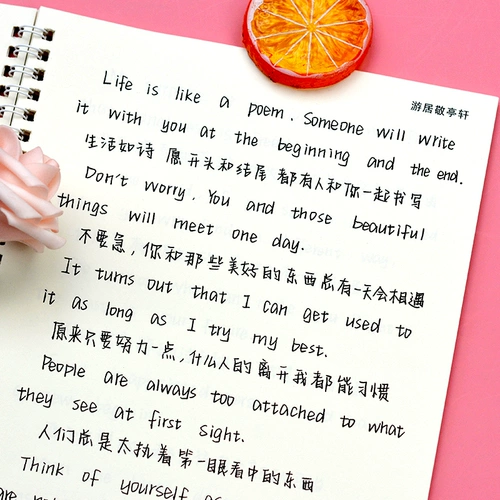 游居敬亭轩
Life is like a poem. Someone will write
it with you at the beginning and the end.
生活如诗 愿开头和结尾 都有人和你一起书写
Don't worry. You and those beautiful
things will meet one day.
不要急，你和那些美好的东西总有一天会相遇
It turns out that I can get used to
it as long as I try my best.
原来只要努力一点，什么人的离开我都能习惯
People are always too attached to what
they see at first sight.
人们总是太执着第一眼看中的东西
Think of yourself as
are not